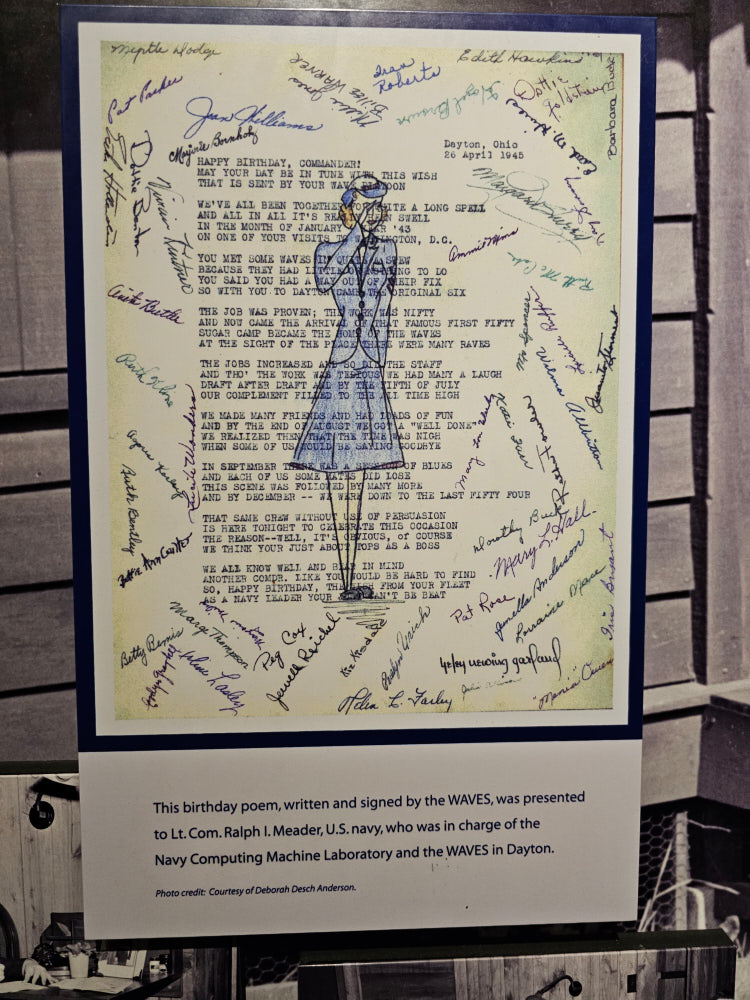 Myrtle Dodge
Edith Hawkins
Pat Parker
Jean Williams
Billee Warner
Fran Roberts
Hazel Brown
Dottie
Barbara
Marjorie Bornholz
Dayton, Ohio
26 April 1945
HAPPY BIRTHDAY, COMMANDER!
MAY YOUR DAY BE IN TUNE WITH THIS WISH
THAT IS SENT BY YOUR WAVE PLATOON
WE'VE ALL BEEN TOGETHER FOR QUITE A LONG SPELL
AND ALL IN ALL IT'S REALLY BEEN SWELL
IN THE MONTH OF JANUARY YEAR '43
ON ONE OF YOUR VISITS TO WASHINGTON, D.C.
YOU MET SOME WAVES IN QUITE A STEW
BECAUSE THEY HAD LITTLE OR NOTHING TO DO
YOU SAID YOU HAD A WAY OUT OF THEIR FIX
SO WITH YOU TO DAYTON CAME THE ORIGINAL SIX
THE JOB WAS PROVEN; THE WORK WAS NIFTY
AND NOW CAME THE ARRIVAL OF THAT FAMOUS FIRST FIFTY
SUGAR CAMP BECAME THE HOME OF THE WAVES
AT THE SIGHT OF THE PLACE THERE WERE MANY RAVES
THE JOBS INCREASED AND SO DID THE STAFF
AND THO' THE WORK WAS TEDIOUS WE HAD MANY A LAUGH
DRAFT AFTER DRAFT AND BY THE FIFTH OF JULY
OUR COMPLEMENT FILLED TO THE ALL TIME HIGH
WE MADE MANY FRIENDS AND HAD LOADS OF FUN
AND BY THE END OF AUGUST WE GOT A "WELL DONE"
WE REALIZED THEN THAT THE TIME WAS NIGH
WHEN SOME OF US WOULD BE SAYING GOODBYE
IN SEPTEMBER THERE WAS A SESSION OF BLUES
AND EACH OF US SOME MATES DID LOSE
THIS SCENE WAS FOLLOWED BY MANY MORE
AND BY DECEMBER -- WE WERE DOWN TO THE LAST FIFTY FOUR
THAT SAME CREW WITHOUT USE OF PERSUASION
IS HERE TONIGHT TO CELEBRATE THIS OCCASION
THE REASON--WELL, IT'S OBVIOUS, OF COURSE
WE THINK YOUR JUST ABOUT TOPS AS A BOSS
WE ALL KNOW WELL AND BEAR IN MIND
ANOTHER COMDR. LIKE YOU WOULD BE HARD TO FIND
SO, HAPPY BIRTHDAY, THE WISH FROM YOUR FLEET
AS A NAVY LEADER YOUR CAN'T BE BEAT
Anita Butler
Ruth Bentley
Betty Bemis
Marge Thompson
Peg Cox
Jewell Reichel
Evelyn Urich
Helen L. Farley
Pat Rose
Dorothy
Mary L. Hall
Jenella Anderson
Lorraine Mace
Iris Bryant
garland
"Mania"
This birthday poem, written and signed by the WAVES, was presented
to Lt. Com. Ralph I. Meader, U.S. navy, who was in charge of the
Navy Computing Machine Laboratory and the WAVES in Dayton.
Photo credit: Courtesy of Deborah Desch Anderson.